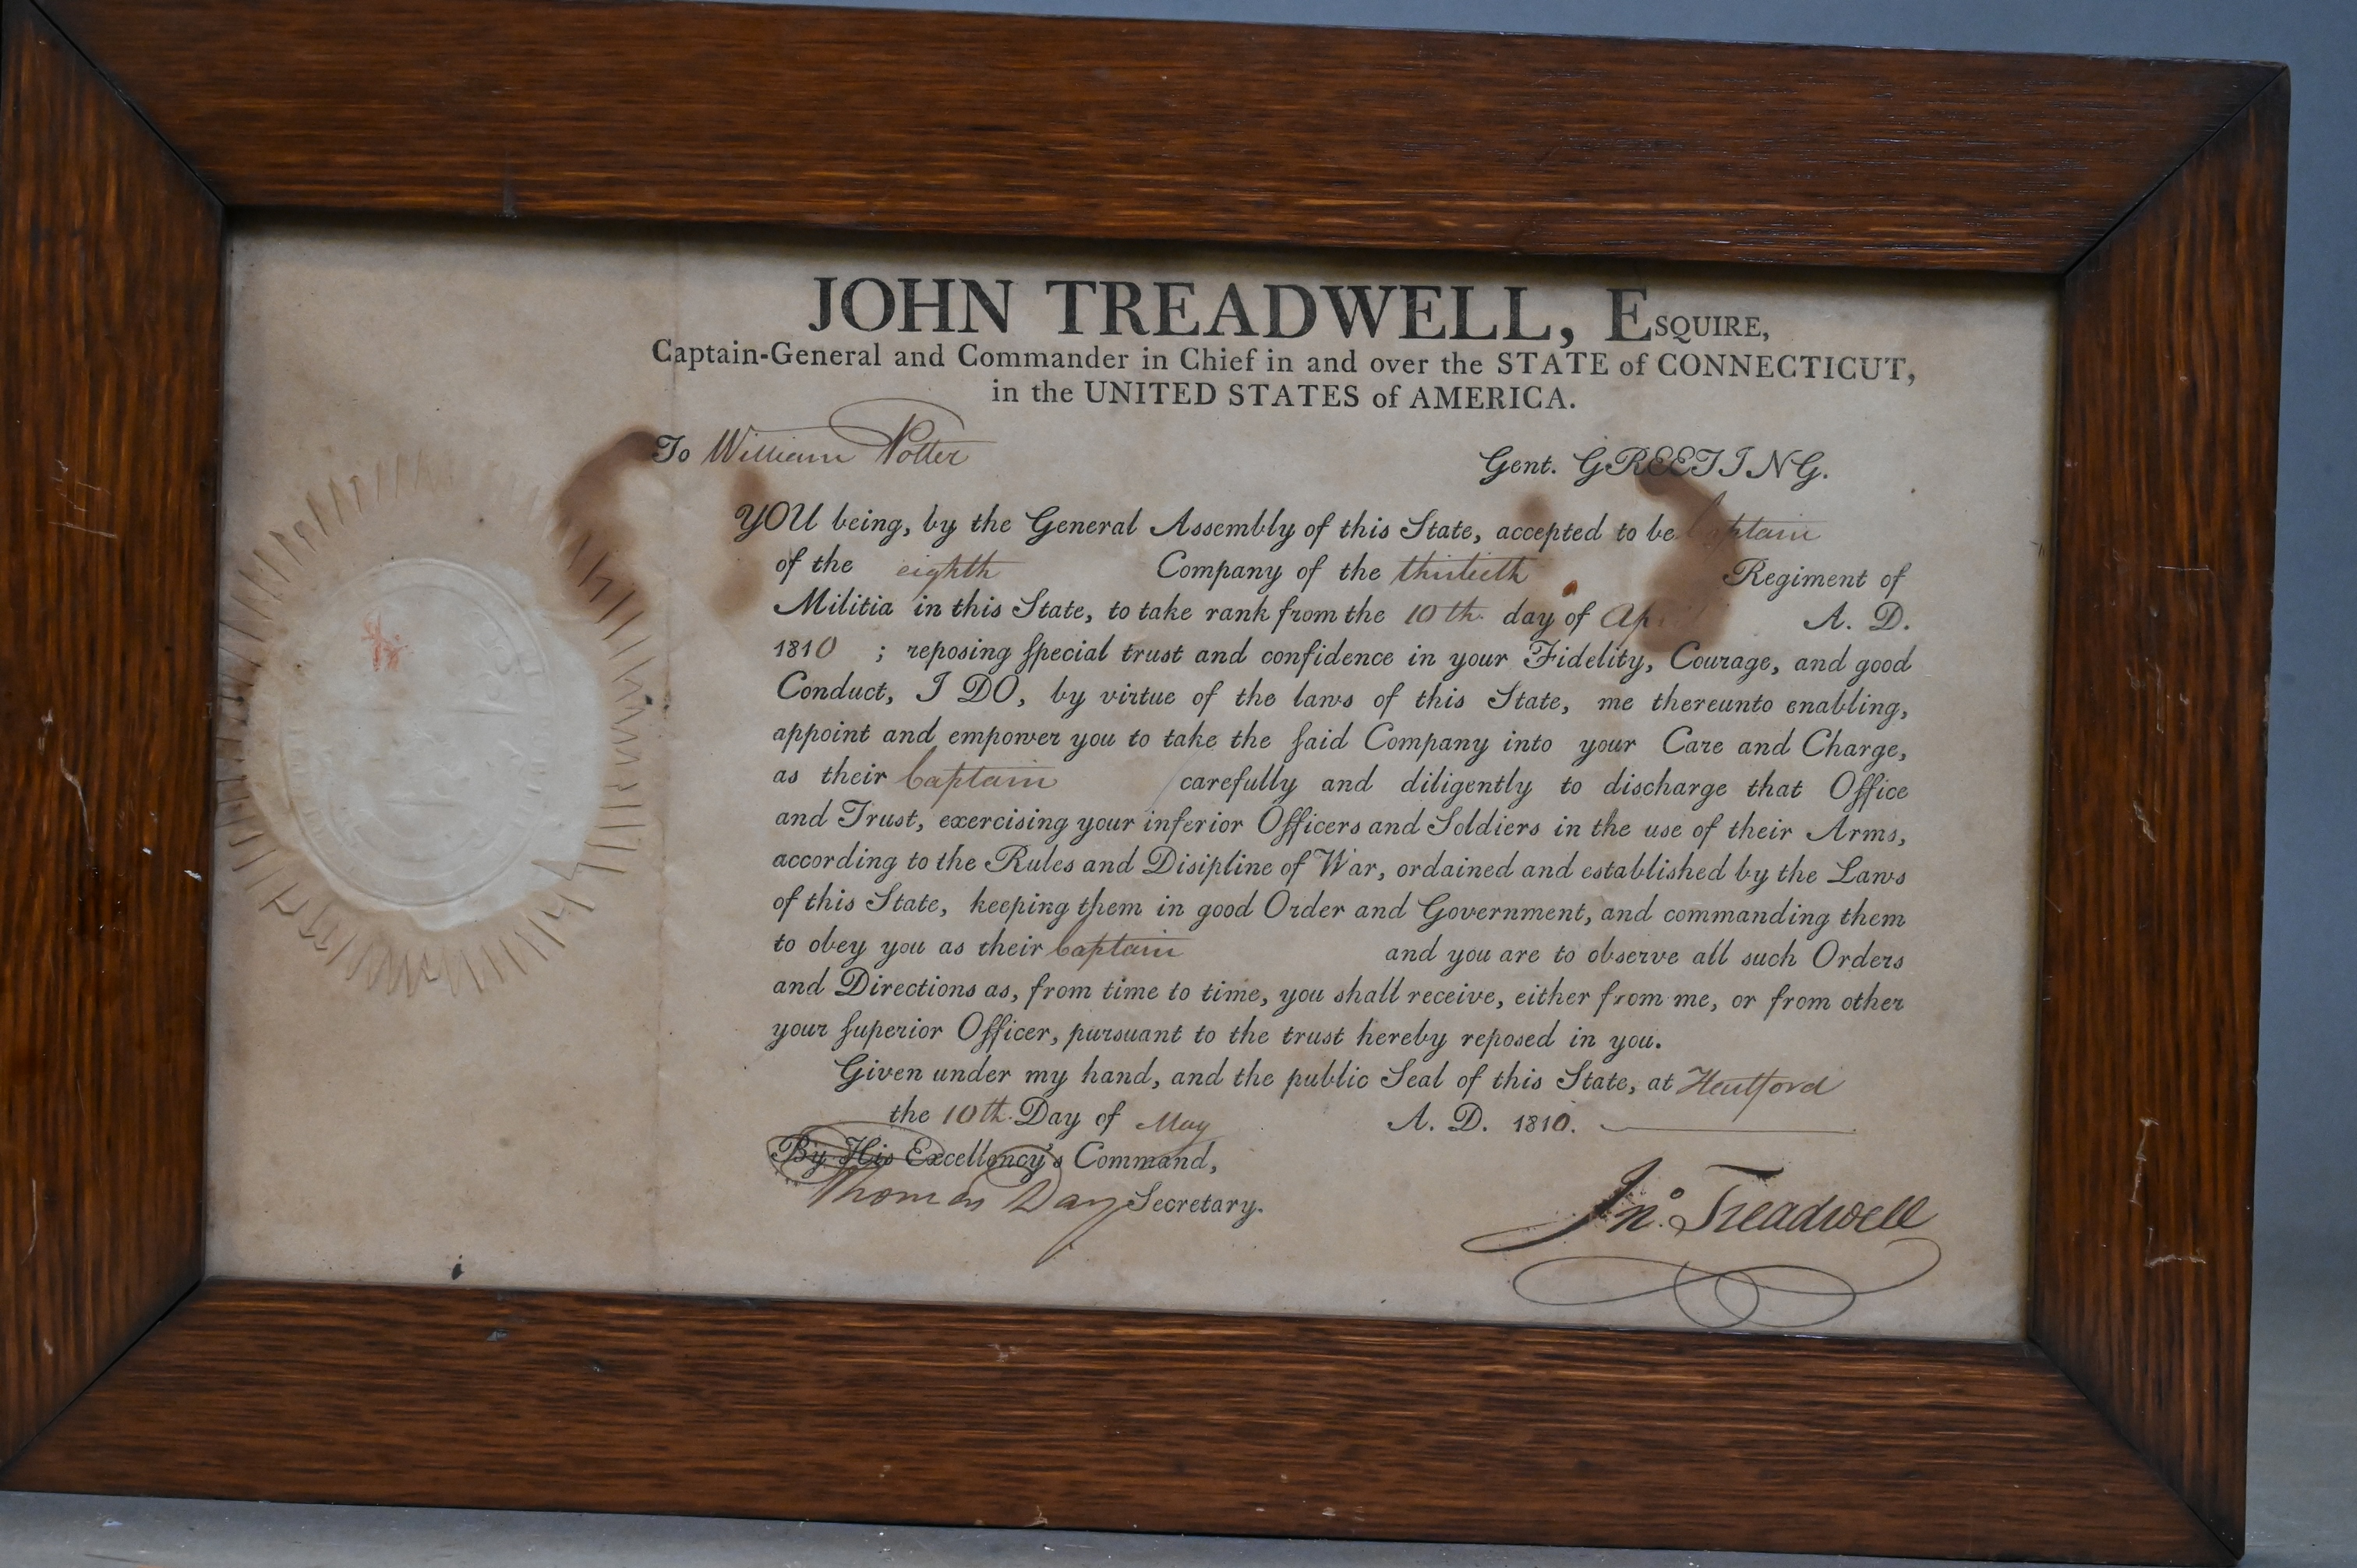 JOHN TREADWELL, ESQUIRE,
Captain-General and Commander in Chief in and over the STATE of CONNECTICUT,
in the UNITED STATES of AMERICA.
To William Potter Gent. GREETING.
YOU being, by the General Assembly of this State, accepted to be Captain
of the eighth Company of the thirtieth Regiment of
Militia in this State, to take rank from the 10th. day of April A. D.
1810 ; reposing special trust and confidence in your Fidelity, Courage, and good
Conduct, I DO, by virtue of the laws of this State, me thereunto enabling,
appoint and empower you to take the said Company into your Care and Charge,
as their Captain carefully and diligently to discharge that Office
and Trust, exercising your inferior Officers and Soldiers in the use of their Arms,
according to the Rules and Disipline of War, ordained and established by the Laws
of this State, keeping them in good Order and Government, and commanding them
to obey you as their Captain and you are to observe all such Orders
and Directions as, from time to time, you shall receive, either from me, or from other
your superior Officer, pursuant to the trust hereby reposed in you.
Given under my hand, and the public Seal of this State, at Hartford
the 10th. Day of May A. D. 1810.
By His Excellency's Command,
Thomas Day Secretary.
Jno. Treadwell